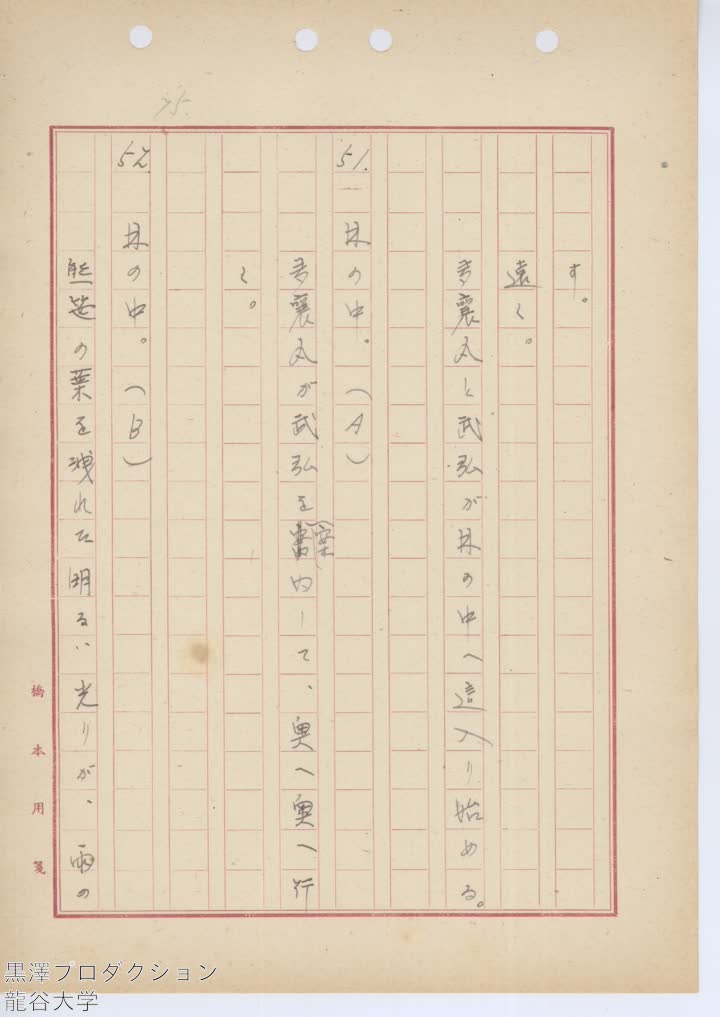 す。
遠く。
多襄丸と武弘が林の中へ這入り始める。
51.
林の中。（A）
多襄丸が武弘を案内して、奥へ奥へ行
く。
52.
林の中。（B）
熊笹の葉を洩れた明るい光りが、雨の
橋本用箋
黒澤プロダクション
龍谷大学